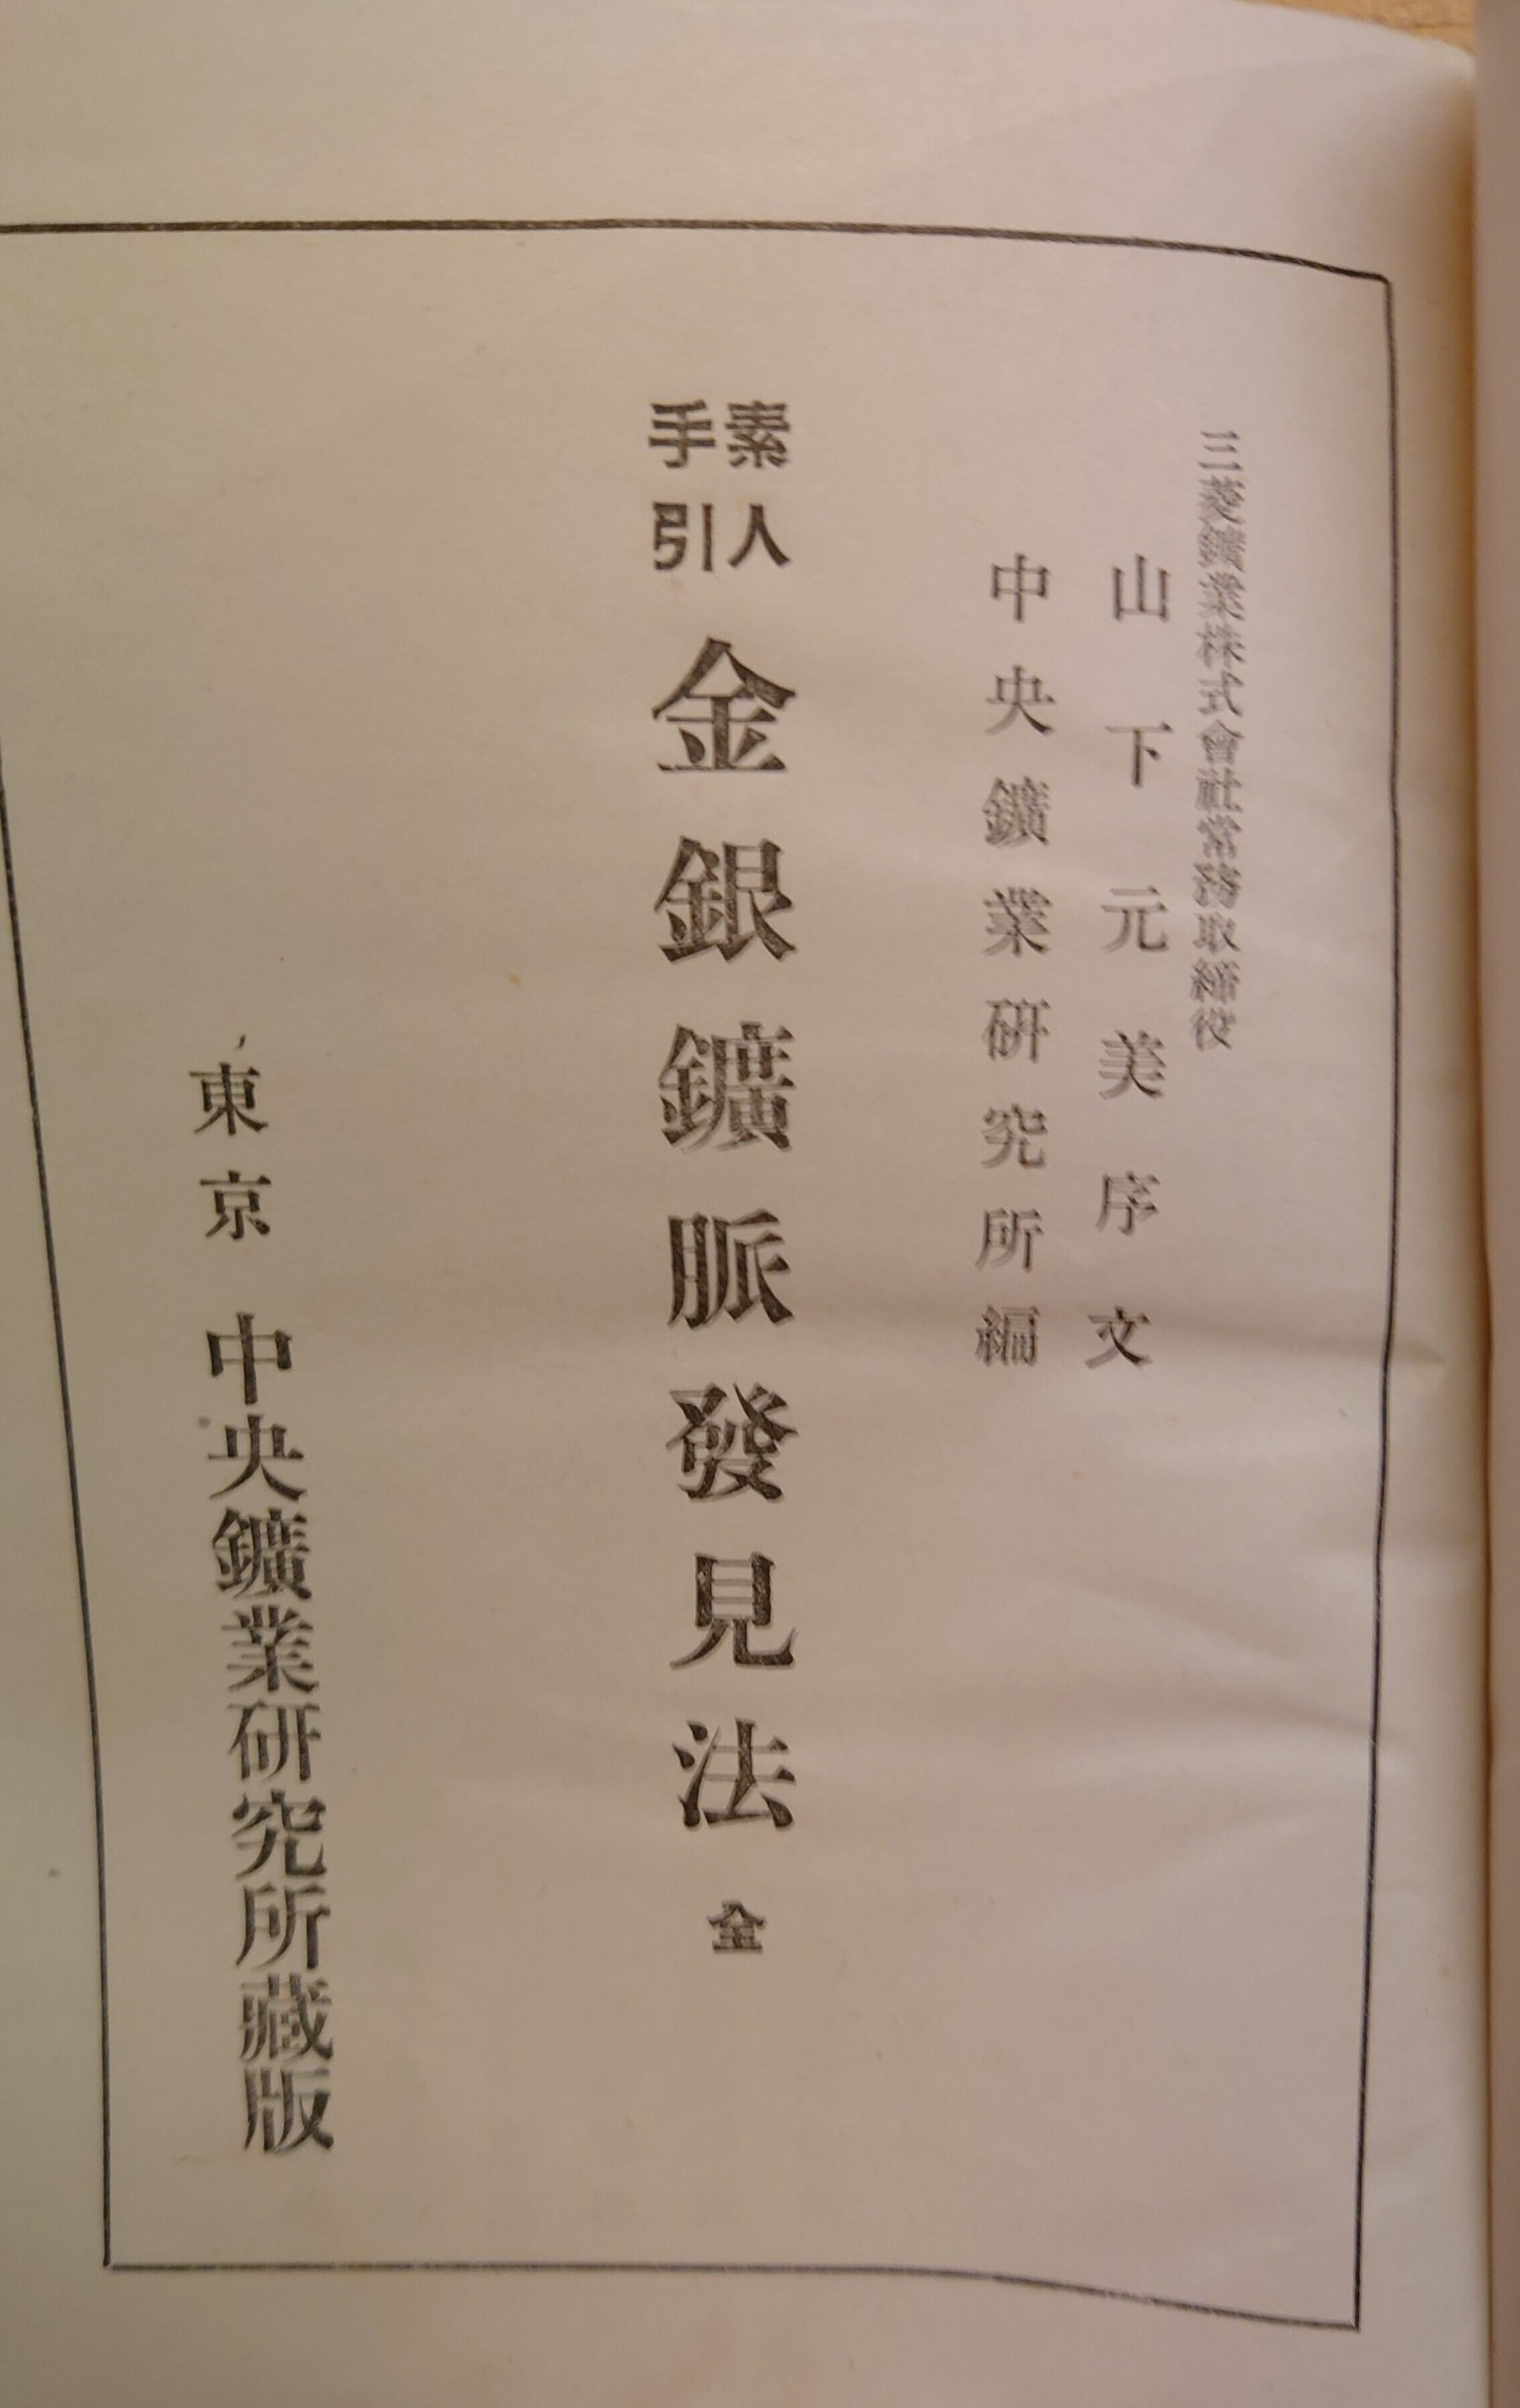 三菱鑛業株式會社常務取締役
山下元美序文
中央鑛業硏究所編
素人
手引
金銀鑛脈發見法 全
東京 中央鑛業研究所藏版